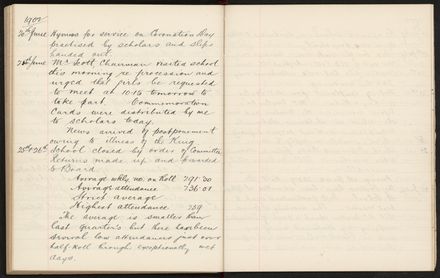 1902
20th June Hymns for service on Coronation Day
practised by scholars and slips
handed out.
24th June Mr Scott, Chairman visited school
this morning re procession and
urged that girls be requested
to meet at 10.15 tomorrow to
take part. Commemoration
Cards were distributed by me
to scholars today.
News arrived of postponement
owing to illness of the King
25th & 26th School closed by order of Committee
Returns made up and forwarded
to Board
Average wkly. no. on Roll 791.30
Average attendance 736.01
Strict average
Highest attendance 759
The average is smaller than
last quarter's but there has been
several low attendances just over
half Roll through exceptionally wet
days.